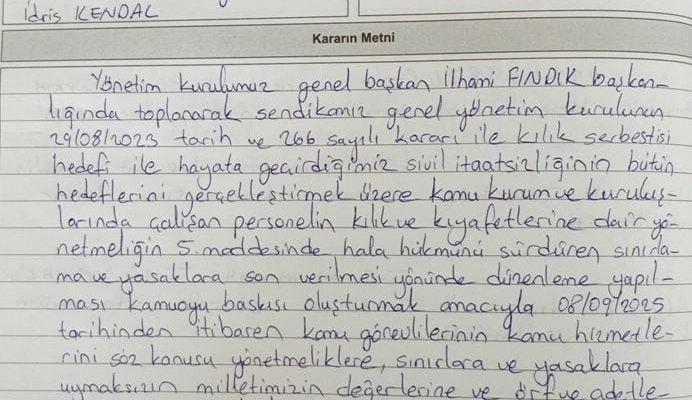 İdris KENDAL
Kararın Metni
Yönetim kurulumuz genel başkan İlhami FINDIK başkan-
lığında toplanarak sendikamız genel yönetim kurulunun
29/08/2023 tarih ve 266 sayılı kararı ile kılık serbestisi
hedefi ile hayata geçirdiğimiz sivil itaatsizliğinin bütün
hedeflerini gerçekleştirmek üzere kamu kurum ve kuruluş-
larında çalışan personelin kılık ve kıyafetlerine dair yö-
netmeliğin 5. maddesinde hala hükmünü sürdüren sınırla-
ma ve yasaklara son verilmesi yönünde düzenleme yapıl-
ması kamuoyu baskısı oluşturmak amacıyla 08/09/2025
tarihinden itibaren kamu görevlilerinin kamu hizmetle-
rini söz konusu yönetmeliklere, sınırlara ve yasaklara
uymaksızın milletimizin değerlerine ve örf ve adetle-